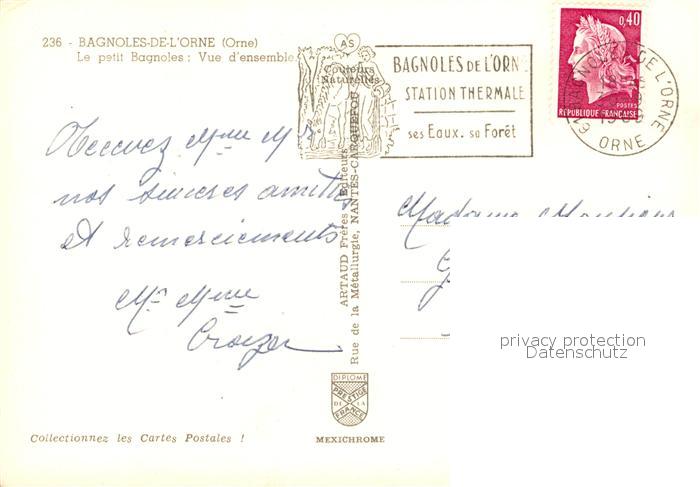 236 - BAGNOLES-DE-L'ORNE (Orne)
Le petit Bagnoles : Vue d'ensemble.
AS
Couleurs
Naturelles
BAGNOLES DE L'ORN
STATION THERMALE
ses Eaux. sa Forêt
0,40
POSTES
REPUBLIQUE FRANÇAISE
DE L'ORNE
ORNE
Recevez Mme Mr
nos sincères amitiés
et remerciements
Mr Mme
ARTAUD Frères Editeurs
Rue de la Métallurgie, NANTES-CARQUEFOU
Madame
privacy protection
Datenschutz
DIPLOME
PRESTIGE
DE LA
FRANCE
Collectionnez les Cartes Postales !
MEXICHROME